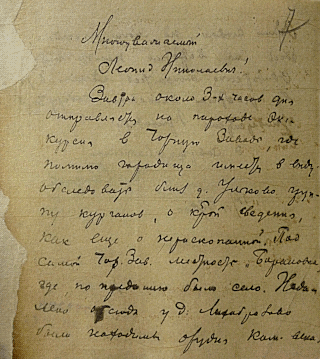 7
Многоуважаемый
Леонид Николаевич!
Завтра около 3-х часов дня
отправляется на пароходе экс-
курсия в Горную Заводь, где
помимо городища имеет в виду
обследовать близ д. груп-
пу курганов, о кот. сведения,
как еще о нераскопанной. Под
самой Гор. Зав. местность „Барановка“,
где по преданию было село. Неда-
леко отсюда у д.
были находимы орудия камен.